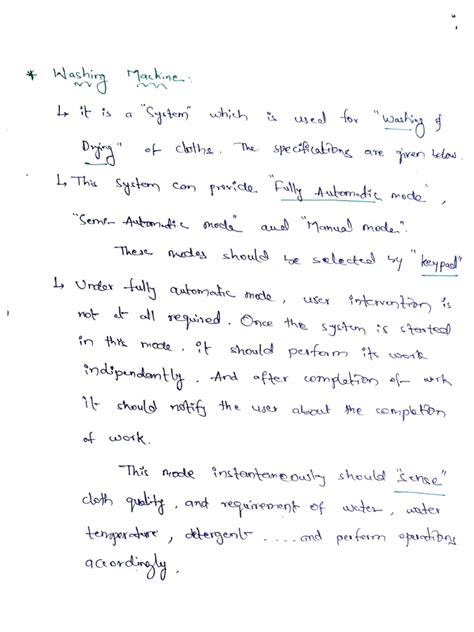 * Washing Machine:
↳ it is a "System" which is used for "Washing &
Drying" of cloths. The specifications are given below.
↳ This system can provide "Fully Automatic mode",
"Semi-Automatic mode" and "Manual mode".
These modes should be selected by "keypad"
↳ Under fully automatic mode, user intervention is
not at all required. Once the system is started
in this mode, it should perform its work
indipendantly. And after completion of work
it should notify the user about the completion
of work.
This mode instantaneously should "sense"
cloth quality, and requirement of water, water
temperature, detergent .....and perform operations
accordingly.